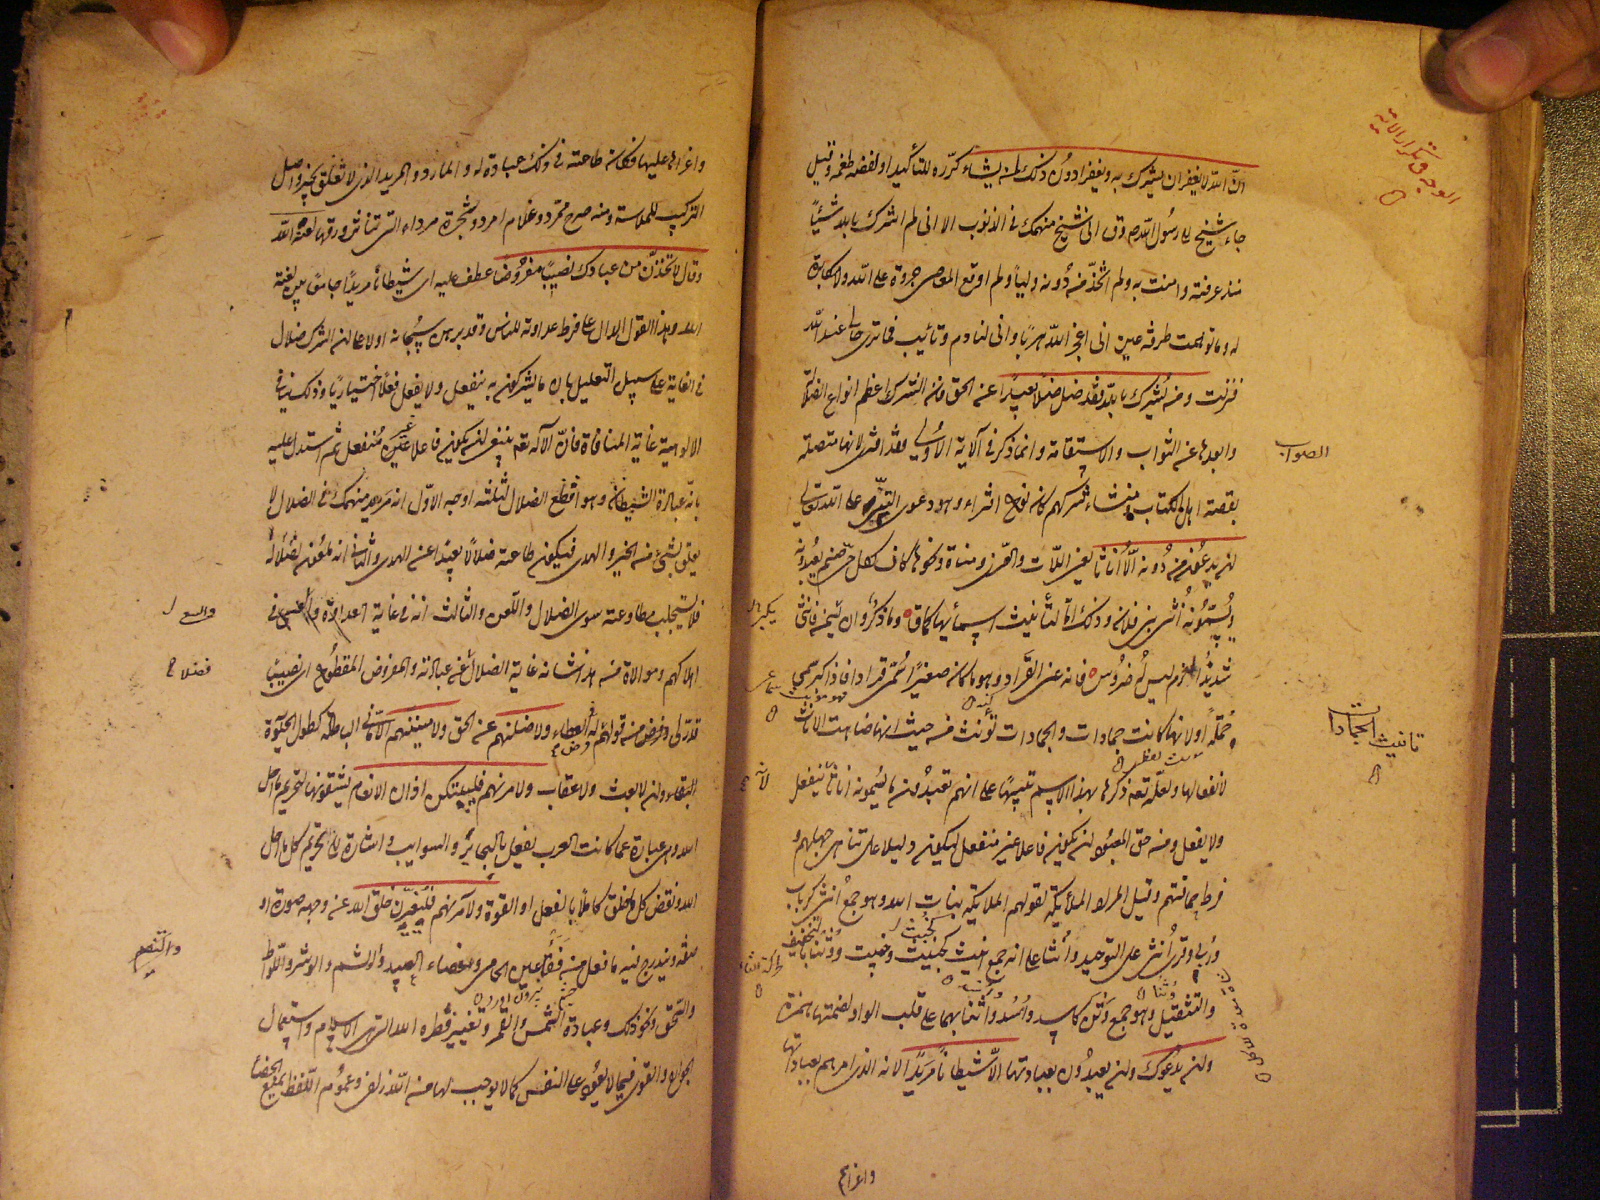 الوجه في تكرار الآية
ان الله لا يغفر ان يشرك به ويغفر ما دون ذلك لمن يشاء كرره للتأكيد او لقصة طعمة وقيل
جاء شيخ الى رسول الله وقال انى شيخ منهمك في الذنوب الا انى لم اشرك بالله شيئا
منذ عرفته وامنت به ولم اتخذ من دونه وليا ولم اوقع المعاصى جرءة على الله ولا مكابرة
له وما توهمت طرفة عين انى اعجز الله هربا وانى لنادم وتائب فما ترى حالى عند الله
فنزلت ومن يشرك بالله فقد ضل ضلالا بعيدا عن الحق فان الشرك اعظم انواع الضلالة
وابعدها عن الثواب والاستقامة وانما ذكر في الآية الاولى فقد افترى لانها متصلة
الصواب
بقصة اهل الكتاب ومنشاء شركهم كان نوع افتراء وهو دعوى التبنى على الله تعالى
ان يدعون من دونه الا اناثا يعنى اللات والعزى ومناة ونحوها كان لكل حى صنم يعبدونه
ويسمونه انثى بنى فلان وذلك اما لتأنيث اسمائها كما قال وما ذكر وان يسمن فانثى
شديد الازم ليس له ضروس فانه عنى القراد وهو ما كان صغيرا سمى قرادا فاذا كبر سمى
حلمة او لانها كانت جمادات والجمادات تؤنث من حيث انها ضاهت الاناث
تانيث الجمادات
لانفعالها ولعله تعالى ذكرها بهذا الاسم تنبيها على انهم يعبدون ما يسمونه اناثا لأنه ينفعل
ولا يفعل ومن حق المعبود ان يكون فاعلا غير منفعل ليكون دليلا على تناهى جهلهم و
فرط حماقتهم وقيل المراد الملائكة لقولهم الملائكة بنات الله وهو جمع انثى كرباب
وربى وقرئ انثى على التوحيد وأنثا على انه جمع انيث كخبث وخبيث ووثنا بالتخفيف
والتثقيل وهو جمع وثن كاسد وأسد وأثنا بهما على قلب الواو لضمتها همزة
وان يدعون وان يعبدون بعبادتها الا شيطانا مريدا لانه الذى امرهم بعبادتها
واغراهم
واغراهم عليها فكان طاعته في ذلك عبادة له والمارد والمريد الذى لا تعلق بخير واصل
التركيب للملاسة ومنه صرح ممرد وغلام امرد وشجرة مرداء التى تناثر ورقها لعنه الله
وقال لاتخذن من عبادك نصيبا مفروضا عطف عليه اى شيطانا مريدا جامعا بين لعنة
الله وهذا القول الدال على فرط عداوته للناس وقد برهن سبحانه اولا على ان الشرك ضلال
في الغاية على سبيل التعليل بان ما يشركون به ينفعل ولا يفعل فعلا اختياريا وذلك ينافى
الالوهية غاية المنافاة فان الآله ينبغى ان يكون فاعلا غير منفعل ثم استدل عليه
بانه عبادة الشيطان وهو افظع الضلال لثلثة اوجه الاول انه مريد منهمك في الضلال لا
يعلق بشئ من الخير والهدى فيكون طاعته ضلالا بعيدا عن الهدى والثانى انه ملعون لضلاله
فلا يستجلب مطاوعته سوى الضلال واللعن والثالث انه في غاية العداوة والسعى في
اهلاكهم وموالاة من هذا شانه غاية الضلال فضلا عن عبادته والمفروض المقطوع اى نصيبا
قدر لى وفرض من قولهم فرض له في العطاء ولاضلنهم عن الحق ولامنينهم الامانى الباطلة كطول الحيوة
البقاء وان لا بعث ولا عقاب ولامرنهم فليبتكن اذان الانعام يشقونها لتحريم ما احل
الله وهى عبارة عما كانت العرب تفعل بالبحائر والسوائب واشارة الى تحريم كل ما احل
الله ونقص كل ما خلق كاملا بالفعل او القوة ولامرنهم فليغيرن خلق الله عن وجهه صورة او
صفة ويندرج فيه ما قيل من فقأ عين الحامى وخصاء العبيد والوشم والوشر واللواط
والسحق ونحو ذلك وعبادة الشمس والقمر وتغيير فطرة الله التى هى الاسلام واستعمال
الجوارح والقوى فيما لا يعود على النفس كمالا يوجب لها من الله زلفى وعموم اللفظ يمنع الخصاء